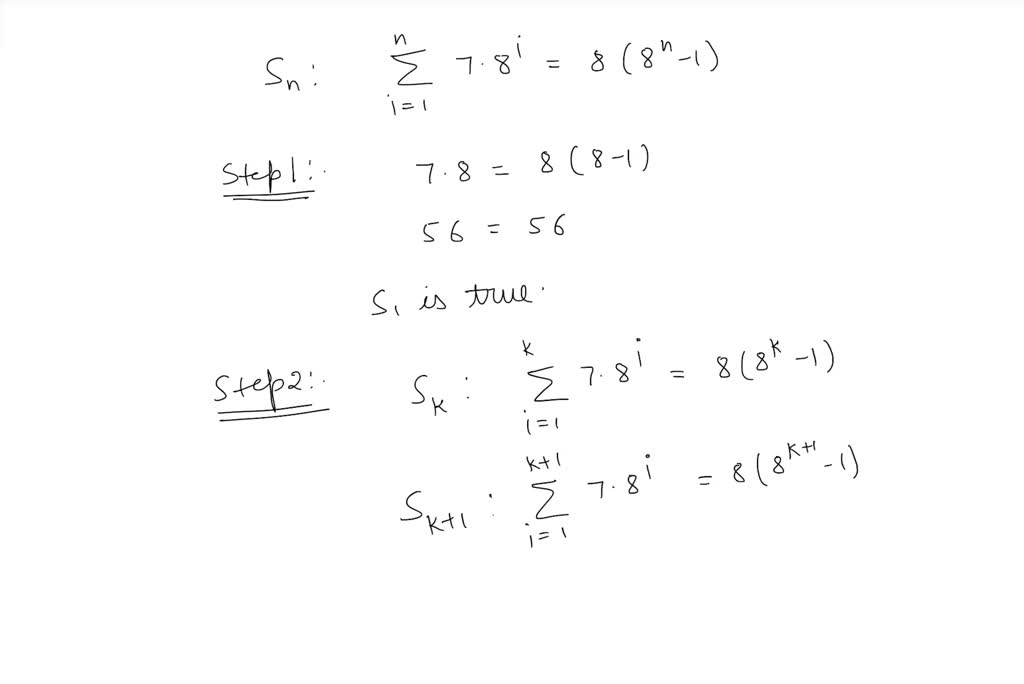 Sₙ: ∑_{i=1}^{n} 7·8^i = 8(8^n-1)
Step1:. 7·8 = 8(8-1)
56 = 56
S₁ is true.
Step2:. S_k: ∑_{i=1}^{k} 7·8^i = 8(8^k-1)
S_{k+1}: ∑_{i=1}^{k+1} 7·8^i = 8(8^{k+1}-1)